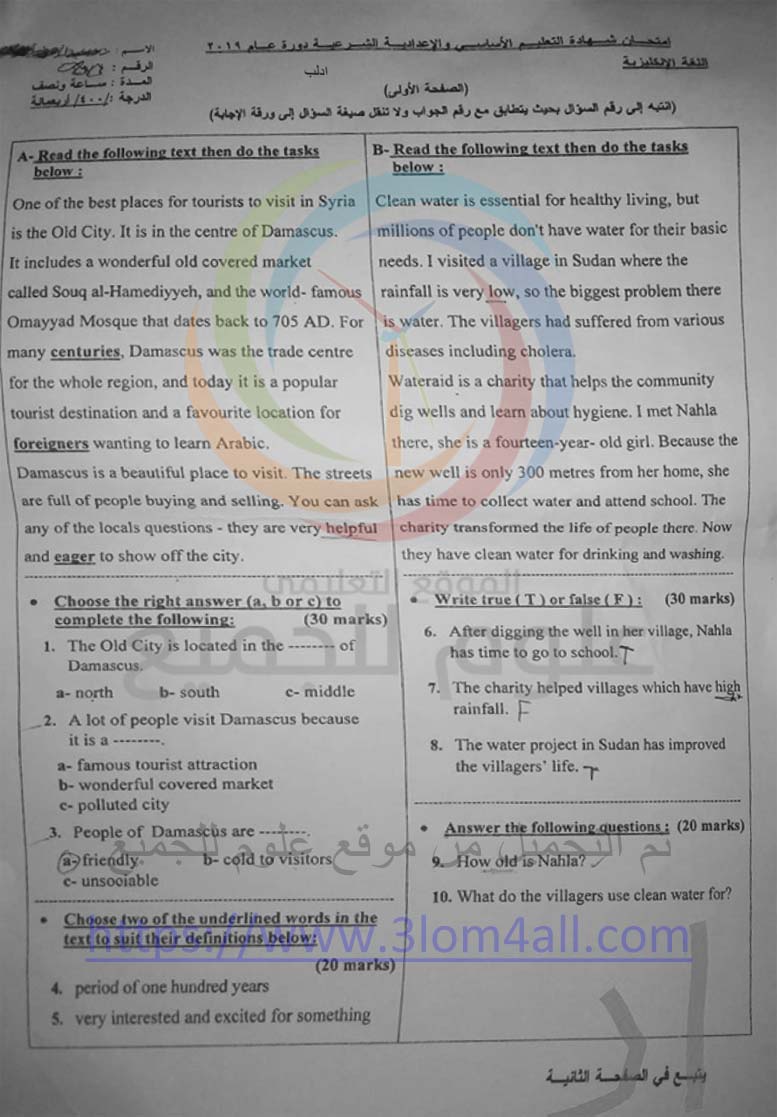 امتحان شهادة التعليم الأساسي والإعدادية الشرعية دورة عام ٢٠١٩
اللغة الإنكليزية
ادلب
الاسم :
الرقم :
المدة : ساعة ونصف
الدرجة : /٤٠٠/ أربعمائة
(الصفحة الأولى)
(انتبه إلى رقم السؤال بحيث يتطابق مع رقم الجواب ولا تنقل صيغة السؤال إلى ورقة الإجابة)
A- Read the following text then do the tasks
below :
One of the best places for tourists to visit in Syria
is the Old City. It is in the centre of Damascus.
It includes a wonderful old covered market
called Souq al-Hamediyyeh, and the world- famous
Omayyad Mosque that dates back to 705 AD. For
many centuries, Damascus was the trade centre
for the whole region, and today it is a popular
tourist destination and a favourite location for
foreigners wanting to learn Arabic.
Damascus is a beautiful place to visit. The streets
are full of people buying and selling. You can ask
any of the locals questions - they are very helpful
and eager to show off the city.
• Choose the right answer (a, b or c) to
complete the following: (30 marks)
1. The Old City is located in the -------- of
Damascus.
a- north b- south c- middle
2. A lot of people visit Damascus because
it is a --------.
a- famous tourist attraction
b- wonderful covered market
c- polluted city
3. People of Damascus are --------.
a- friendly b- cold to visitors
c- unsociable
• Choose two of the underlined words in the
text to suit their definitions below:
(20 marks)
4. period of one hundred years
5. very interested and excited for something
B- Read the following text then do the tasks
below :
Clean water is essential for healthy living, but
millions of people don't have water for their basic
needs. I visited a village in Sudan where the
rainfall is very low, so the biggest problem there
is water. The villagers had suffered from various
diseases including cholera.
Wateraid is a charity that helps the community
dig wells and learn about hygiene. I met Nahla
there, she is a fourteen-year- old girl. Because the
new well is only 300 metres from her home, she
has time to collect water and attend school. The
charity transformed the life of people there. Now
they have clean water for drinking and washing.
• Write true ( T ) or false ( F ) : (30 marks)
6. After digging the well in her village, Nahla
has time to go to school. T
7. The charity helped villages which have high
rainfall. F
8. The water project in Sudan has improved
the villagers' life. T
• Answer the following questions : (20 marks)
9. How old is Nahla?
10. What do the villagers use clean water for?
يتبع في الصفحة الثانية
الموقع التعليمي
علوم للجميع
تم التحميل من موقع علوم للجميع
https://www.3lom4all.com